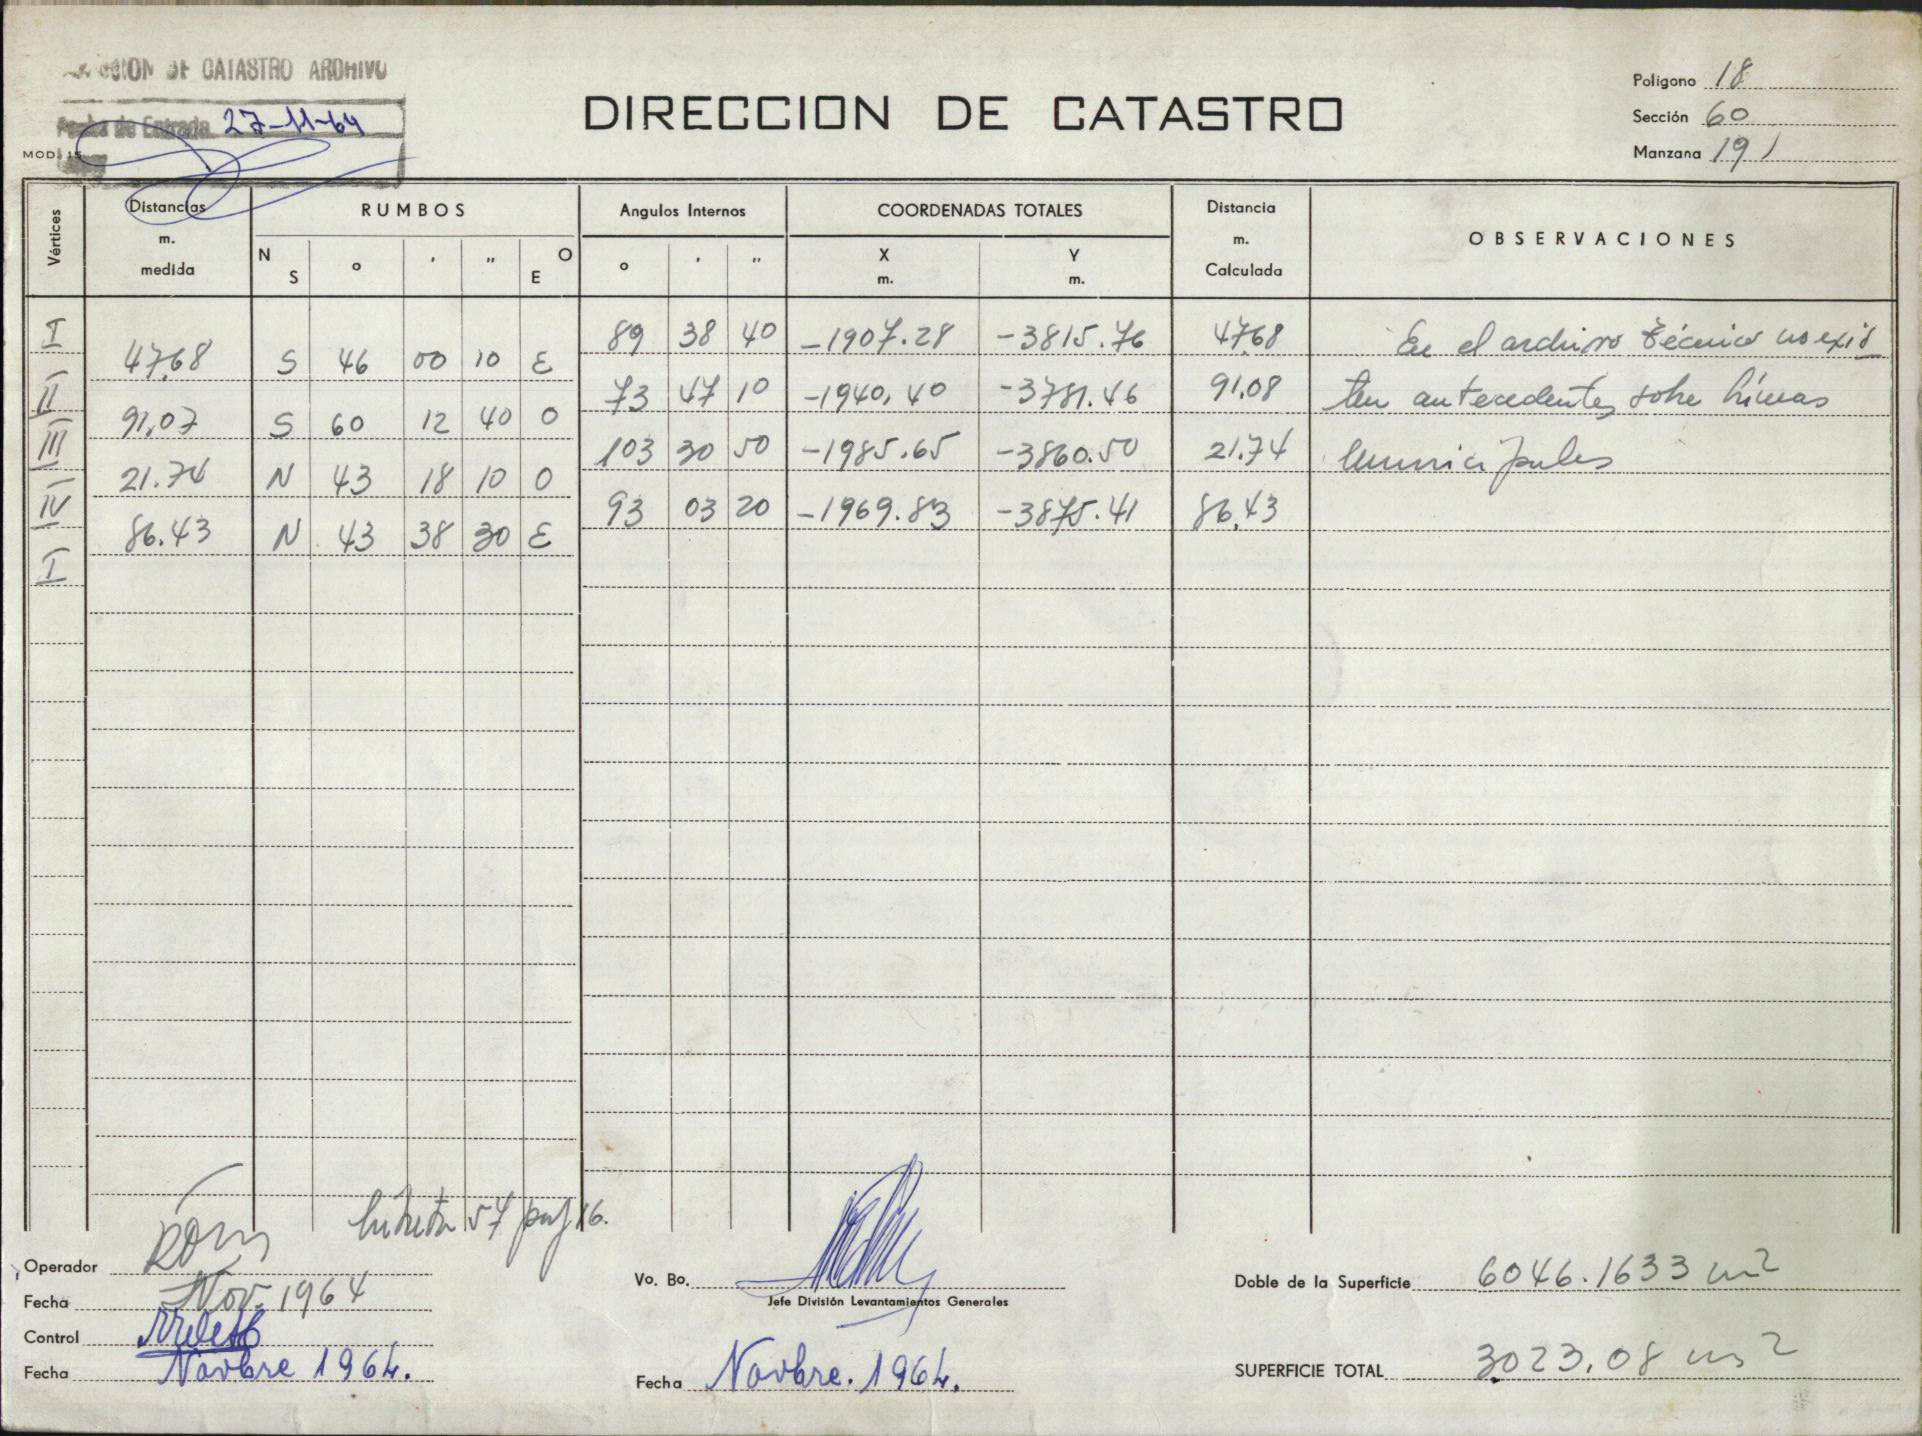 CCION DE CATASTRO ARCHIVO
Fecha de Entrada 27-11-64
MOD. 15
DIRECCION DE CATASTRO
Polígono 18
Sección 60
Manzana 191
Vértices
Distancias m. medida
RUMBOS
N S ° ' " O E
Angulos Internos
° ' "
COORDENADAS TOTALES
X m.
Y m.
Distancia m. Calculada
OBSERVACIONES
I 89 38 40 -1907.28 -3815.76 47.68 En el archivo técnico no exis
47.68 S 46 00 10 E
II 73 47 10 -1940.40 -3781.46 91.08 ten antecedentes sobre líneas
91.07 S 60 12 40 O
III 103 30 50 -1985.65 -3860.50 21.74 municipales
21.74 N 43 18 10 O
IV 93 03 20 -1969.83 -3875.41 86.43
86.43 N 43 38 30 E
I
libreta 57 pag 16.
Operador
Fecha Nov. 1964
Control
Fecha Novbre 1964.
Vo. Bo.
Jefe División Levantamientos Generales
Fecha Novbre. 1964.
Doble de la Superficie 6046.1633 m2
SUPERFICIE TOTAL 3023,08 m2